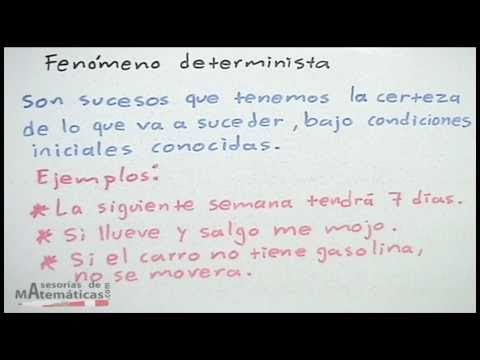 Fenómeno determinista
Son sucesos que tenemos la certeza
de lo que va a suceder, bajo condiciones
iniciales conocidas.
Ejemplos:
* La siguiente semana tendrá 7 días.
* Si llueve y salgo me mojo.
* Si el carro no tiene gasolina,
no se movera.
Asesorías de
Matemáticas.com